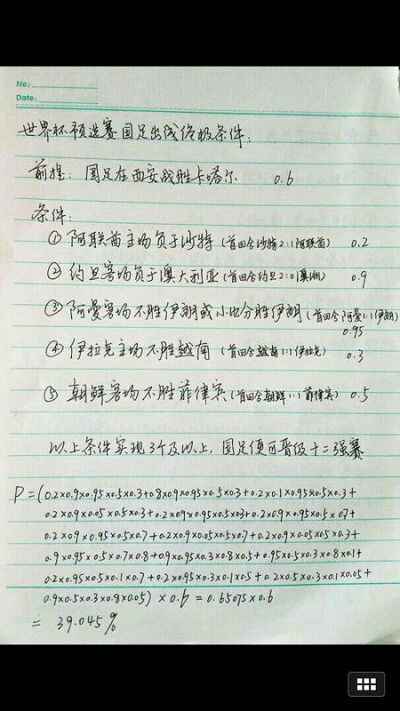 No:
Date:
世界杯预选赛国足出线终极条件:
前提: 国足在西安战胜卡塔尔 0.6
条件:
① 阿联酋主场负于沙特(首回合沙特2:1阿联酋) 0.2
② 约旦客场负于澳大利亚(首回合约旦2:0澳洲) 0.9
③ 阿曼客场不胜伊朗或小比分胜伊朗(首回合阿曼1:1伊朗)
0.95
④ 伊拉克主场不胜越南 (首回合越南1:1伊拉克) 0.3
⑤ 朝鲜客场不胜菲律宾(首回合朝鲜1:1菲律宾) 0.5
以上条件实现3个及以上, 国足便可晋级十二强赛
P=(0.2×0.9×0.95×0.5×0.3+0.8×0.9×0.95×0.5×0.3+0.2×0.1×0.95×0.5×0.3+
0.2×0.9×0.05×0.5×0.3+0.2×0.9×0.95×0.5×0.3+0.2×0.9×0.95×0.5×0.7+
0.2×0.9×0.95×0.5×0.7+0.2×0.9×0.05×0.5×0.7+0.2×0.9×0.05×0.5×0.3+
0.9×0.95×0.5×0.7×0.8+0.9×0.95×0.3×0.8×0.5+0.95×0.5×0.3×0.8×0.1+
0.2×0.95×0.5×0.1×0.7+0.2×0.95×0.3×0.1×0.5+0.2×0.5×0.3×0.1×0.05+
0.9×0.5×0.3×0.8×0.05)×0.6=0.65075×0.6
= 39.045%